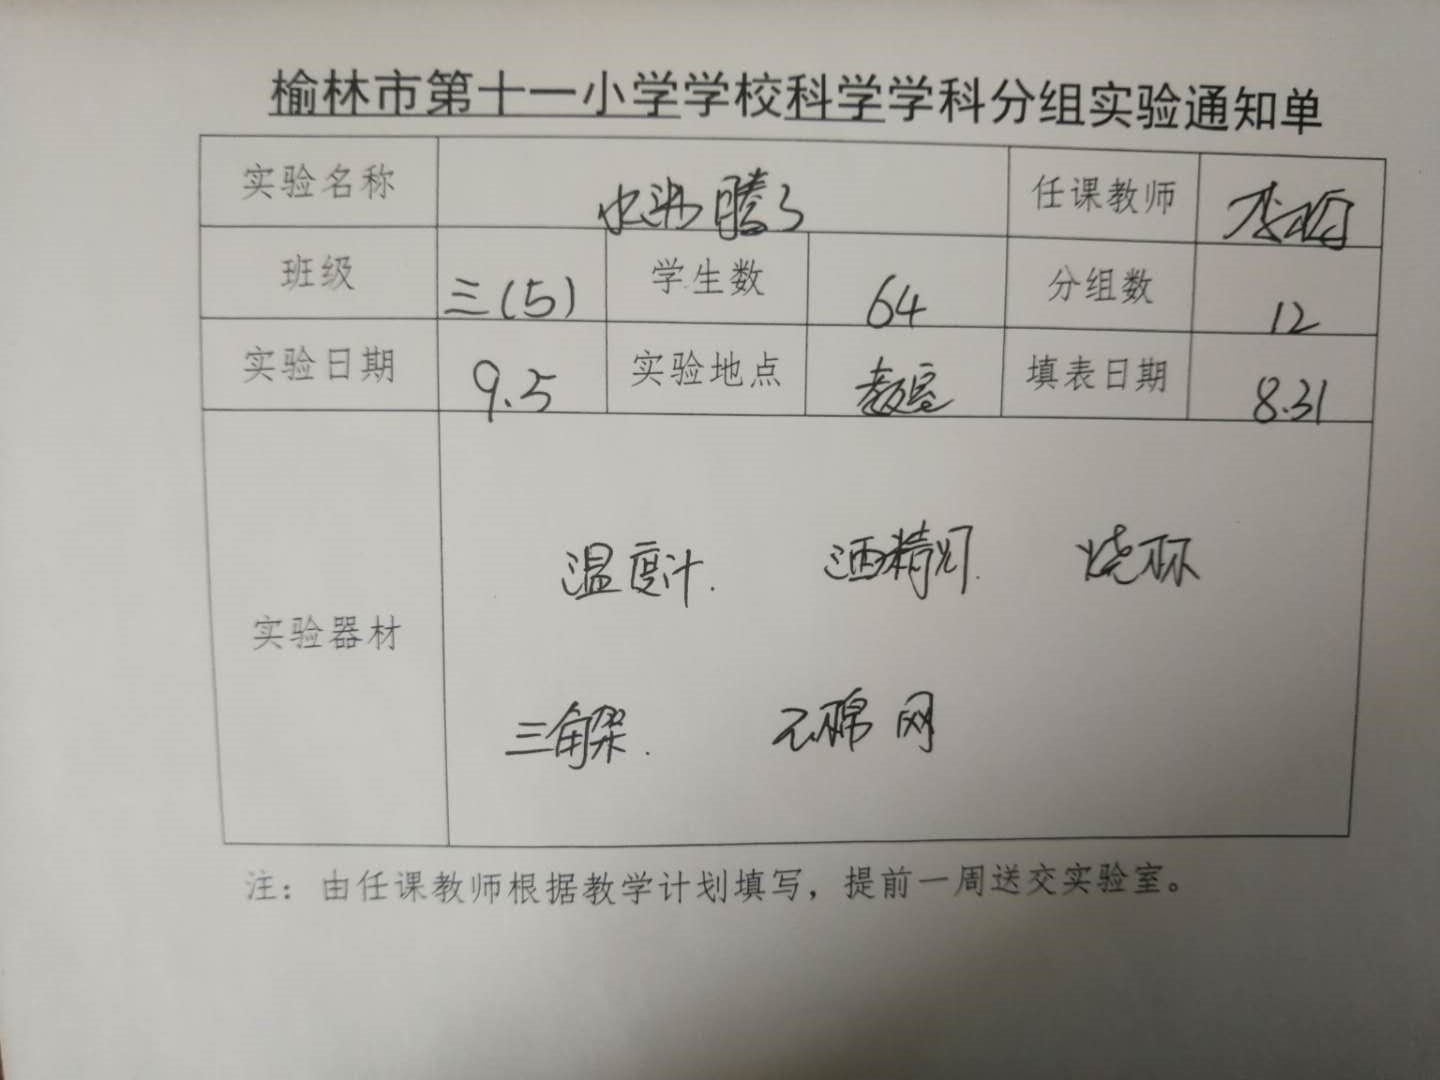 榆林市第十一小学学校科学学科分组实验通知单
实验名称 水沸腾了 任课教师 李
班级 三(5) 学生数 64 分组数 12
实验日期 9.5 实验地点 教室 填表日期 8.31
温度计. 酒精灯. 烧杯
实验器材
三角架. 石棉网
注：由任课教师根据教学计划填写，提前一周送交实验室。